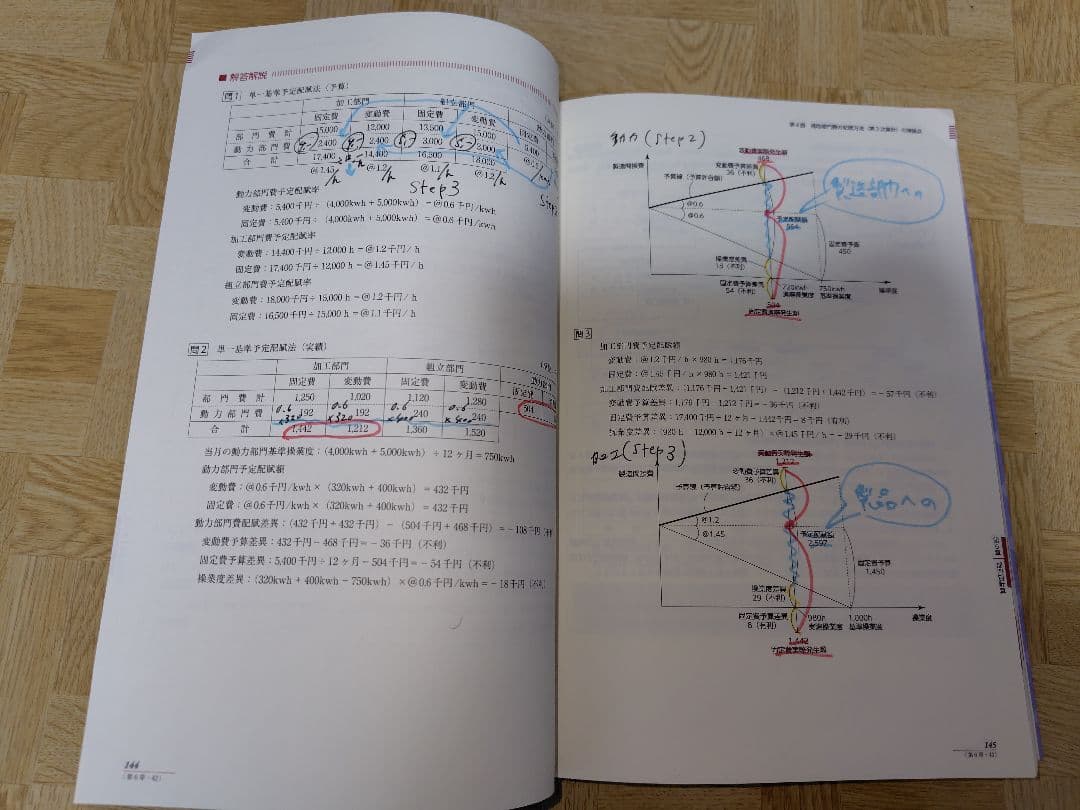 ■ 解答解説
問1 単一基準予定配賦法(予算)
加工部門 組立部門
固定費 変動費 固定費 変動費 固定費
部門費計 15,000 12,000 13,500 15,000 5,400
動力部門費 2,400 2,400 3,000 3,000 5,400
合計 17,400 14,400 16,500 18,000
@1.45 @1.2 @1.1 @1.2
/h /h /h /h
Step3
動力部門費予定配賦率
変動費:5,400千円÷(4,000kwh+5,000kwh)=@0.6千円/kwh
固定費:5,400千円÷(4,000kwh+5,000kwh)=@0.6千円/kwh
加工部門費予定配賦率
変動費:14,400千円÷12,000h=@1.2千円/h
固定費:17,400千円÷12,000h=@1.45千円/h
組立部門費予定配賦率
変動費:18,000千円÷15,000h=@1.2千円/h
固定費:16,500千円÷15,000h=@1.1千円/h
問2 単一基準予定配賦法(実績)
加工部門 組立部門
固定費 変動費 固定費 変動費 固定費
部門費計 1,250 1,020 1,120 1,280 504
0.6 0.6 0.6 0.6
動力部門費 192 192 240 240
×320 ×320 ×400 ×400
合計 1,442 1,212 1,360 1,520
当月の動力部門基準操業度:(4,000kwh+5,000kwh)÷12ヶ月=750kwh
動力部門予定配賦額
変動費:@0.6千円/kwh×(320kwh+400kwh)=432千円
固定費:@0.6千円/kwh×(320kwh+400kwh)=432千円
動力部門費配賦差異:(432千円+432千円)-(504千円+468千円)=-108千円(不利
変動費予算差異:432千円-468千円=-36千円(不利)
固定費予算差異:5,400千円÷12ヶ月-504千円=-54千円(不利)
操業度差異:(320kwh+400kwh-750kwh)×@0.6千円/kwh=-18千円(不利)
144
(第6章-42)
動力(Step2)
変動費実際発生額
468
製造間接費
変動費予算差異
36(不利)
予算線(予算許容額)
製造部門への
@0.6
@0.6
予定配賦額
864
固定費予算
450
操業度差異
18(不利)
固定費予算差異
54(不利)
720kwh 750kwh
実際操業度 基準操業度
操業度
504
固定費実際発生額
問3
加工部門費予定配賦額
変動費:@1.2千円/h×980h=1,176千円
固定費:@1.45千円/h×980h=1,421千円
加工部門費配賦差異:(1,176千円+1,421千円)-(1,212千円+1,442千円)=-57千円(不利)
変動費予算差異:1,176千円-1,212千円=-36千円(不利)
固定費予算差異:17,400千円÷12ヶ月-1,442千円=8千円(有利)
操業度差異:(980h-12,000h÷12ヶ月)×@1.45千円/h=-29千円(不利)
加工(Step3)
変動費実際発生額
1,212
製造間接費
変動費予算差異
36(不利)
予算線(予算許容額)
製品への
@1.2
@1.45
予定配賦額
2,597
固定費予算
1,450
操業度差異
29(不利)
固定費予算差異
8(有利)
980h 1,000h
実際操業度 基準操業度
操業度
1,442
固定費実際発生額
145
(第6章-43)